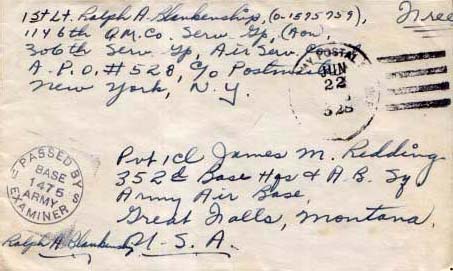 1st Lt. Ralph A. Blankenship, (O-1575759), Free
1146th QM. Co. Serv. Gp, (Avn),
306th Serv. Gp, Air Serv.
A.P.O. # 528, c/o Postmaster
New York, N.Y.
POSTAL
JUN
22
528
PASSED BY
BASE
1475
ARMY
EXAMINER
U S
Pvt 1cl James M. Redding
352d Base Hqs & A.B. Sq
Army Air Base,
Great Falls, Montana.
U.S.A.
Ralph A Blankenship